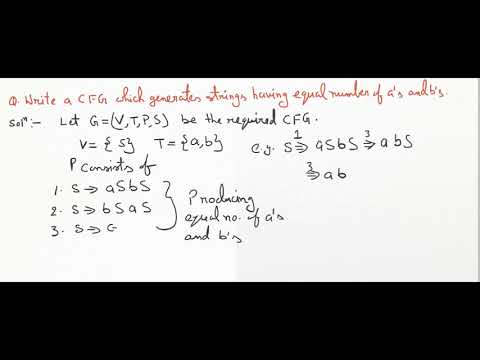 Q. Write a CFG which generates strings having equal number of a's and b's.
Solⁿ:- Let G=(V,T,P,S) be the required CFG.
V= {S} T= {a,b}
P consists of
1. S ⇒ aSbS
2. S ⇒ bSaS
3. S ⇒ ϵ
Producing
equal no. of a's
and b's
e.g. S ⇒¹ aSbS ⇒³ abS
⇒³ ab